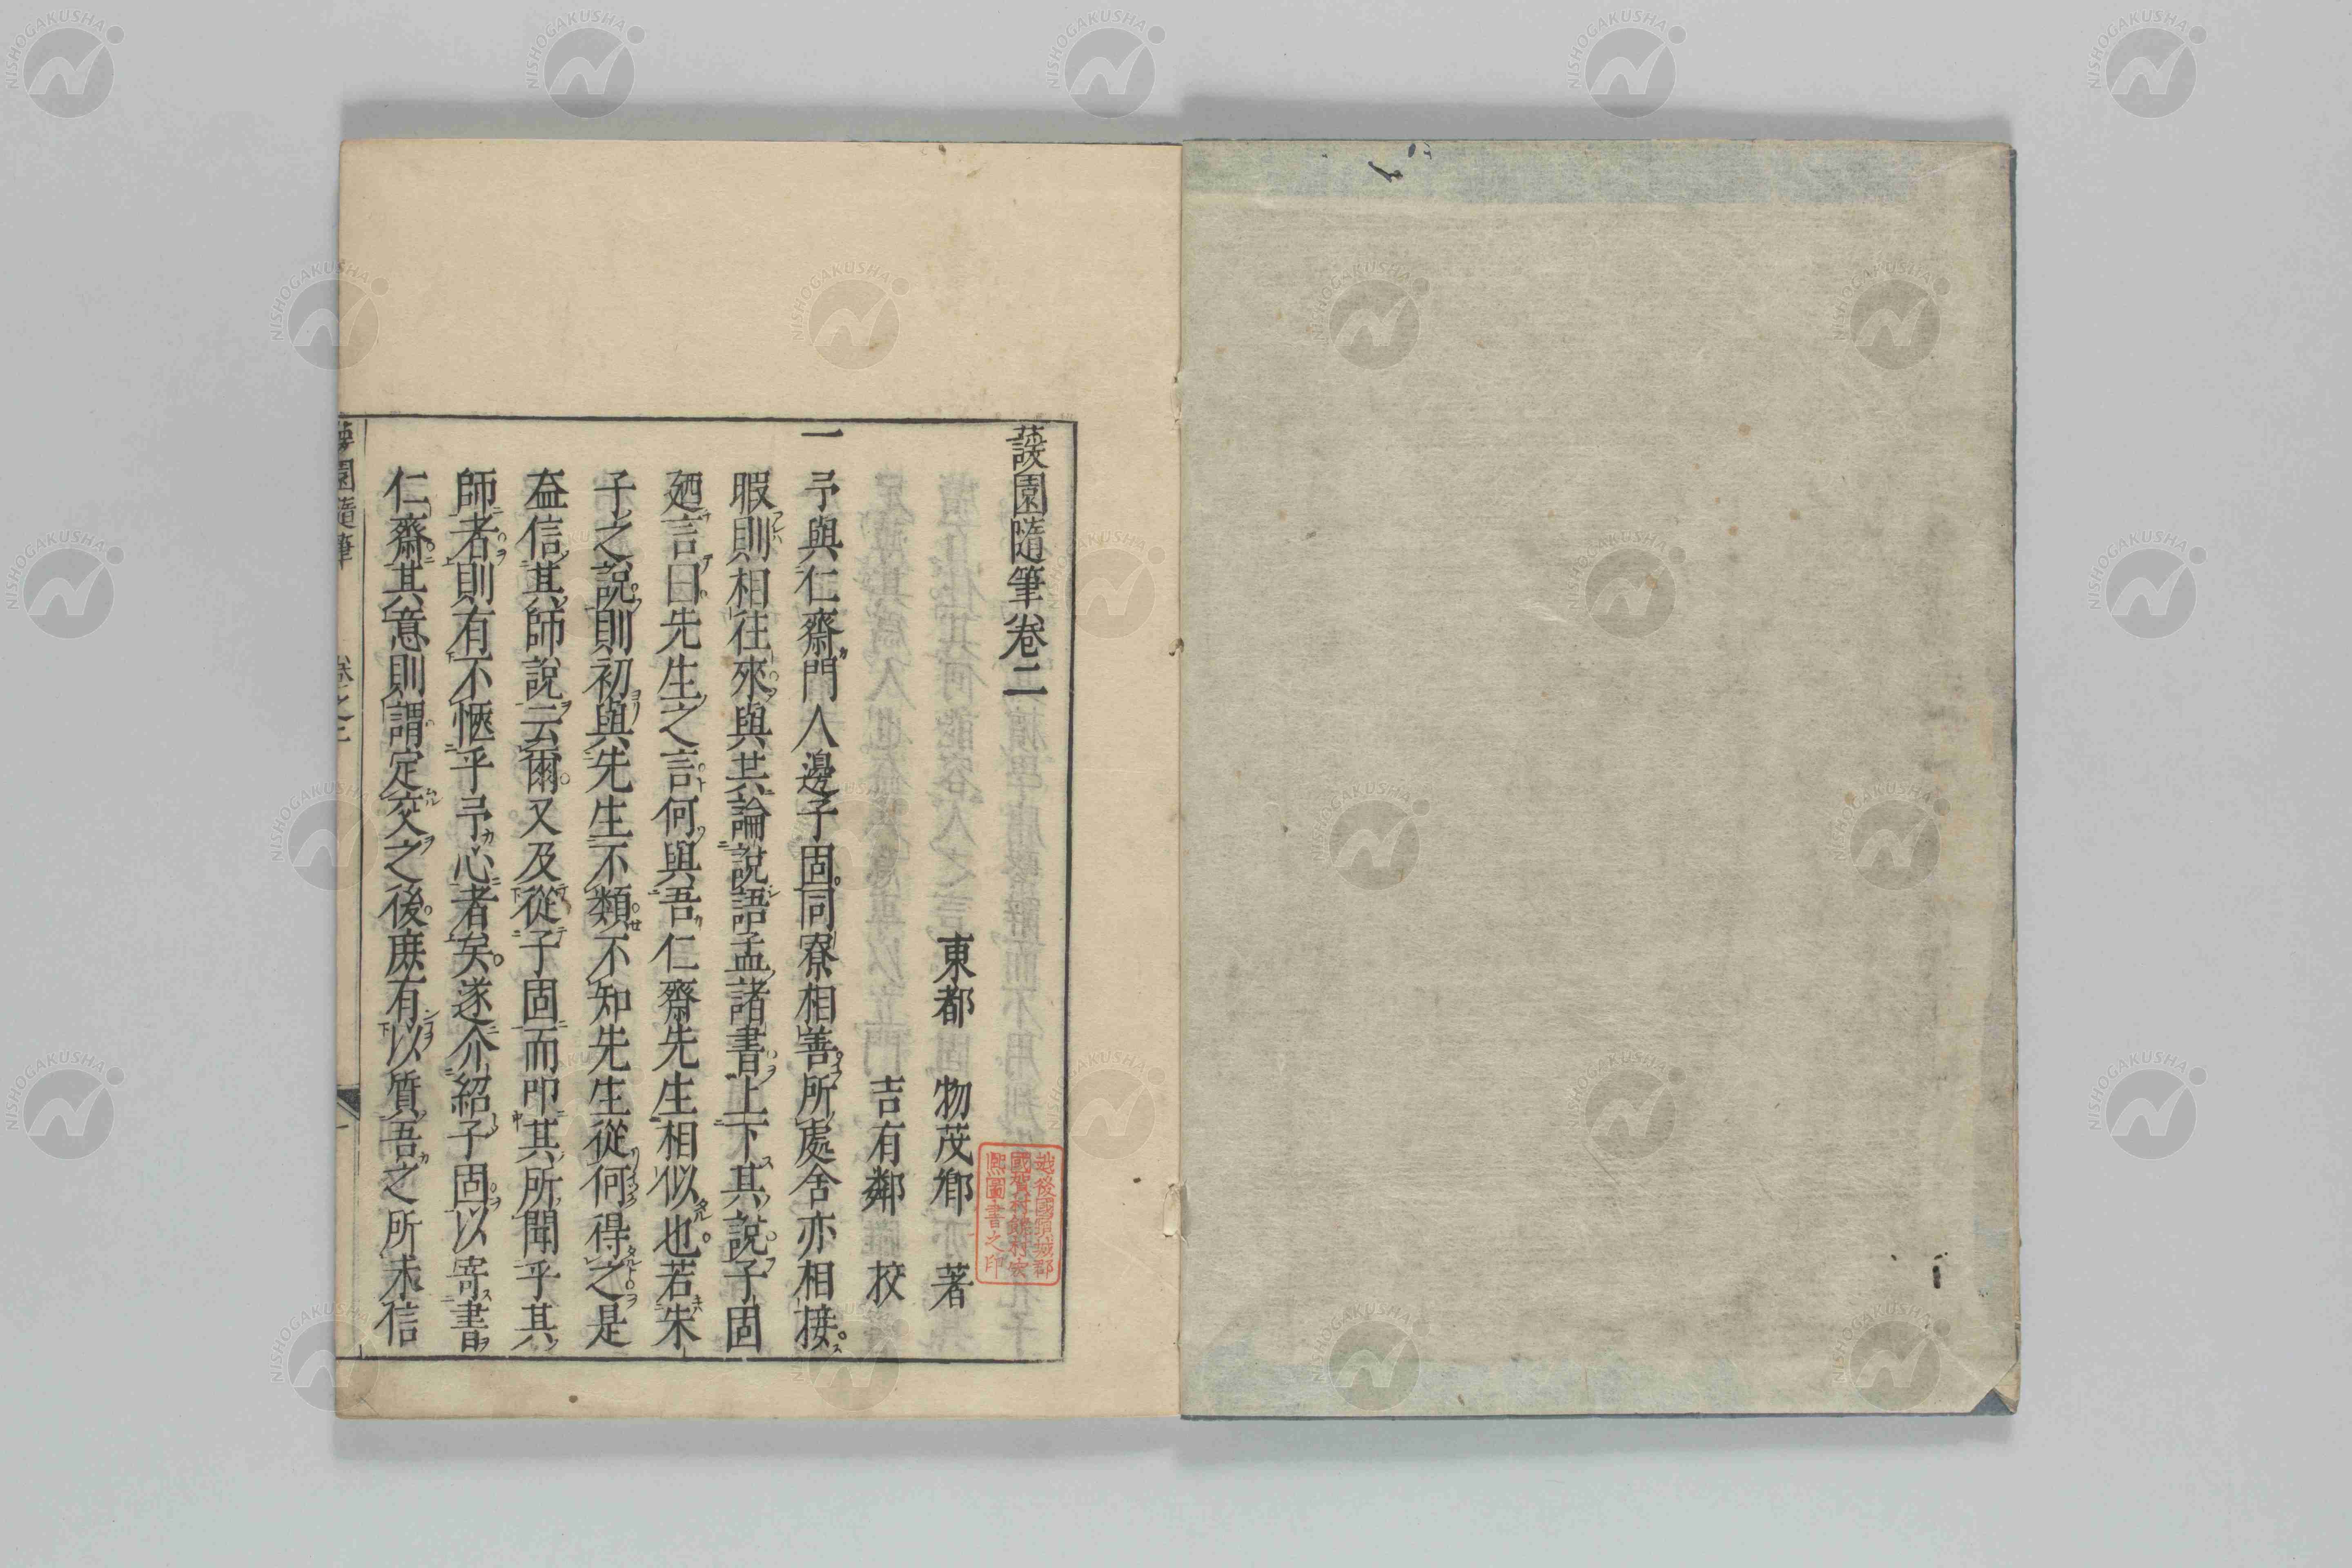 蘐園隨筆卷二
東都 物茂卿 著
吉有鄰 挍
一 予與仁齋門人邊子固同寮相善所處舍亦相接
暇則相往來與其論說語孟諸書上下其說子固
廼言曰先生之言何與吾仁齋先生相似也若朱
子之說則初與先生不類不知先生從何得之是
益信其師說云爾又及從子固而叩其所聞乎其
師者則有不愜乎予心者矣遂介紹子固以寄書
仁齋其意則謂定交之後庶有以質吾之所未信
蘐園隨筆 卷之二 一
越後國頸城郡
國賀村
熙圖書之印
NISHOGAKUSHA